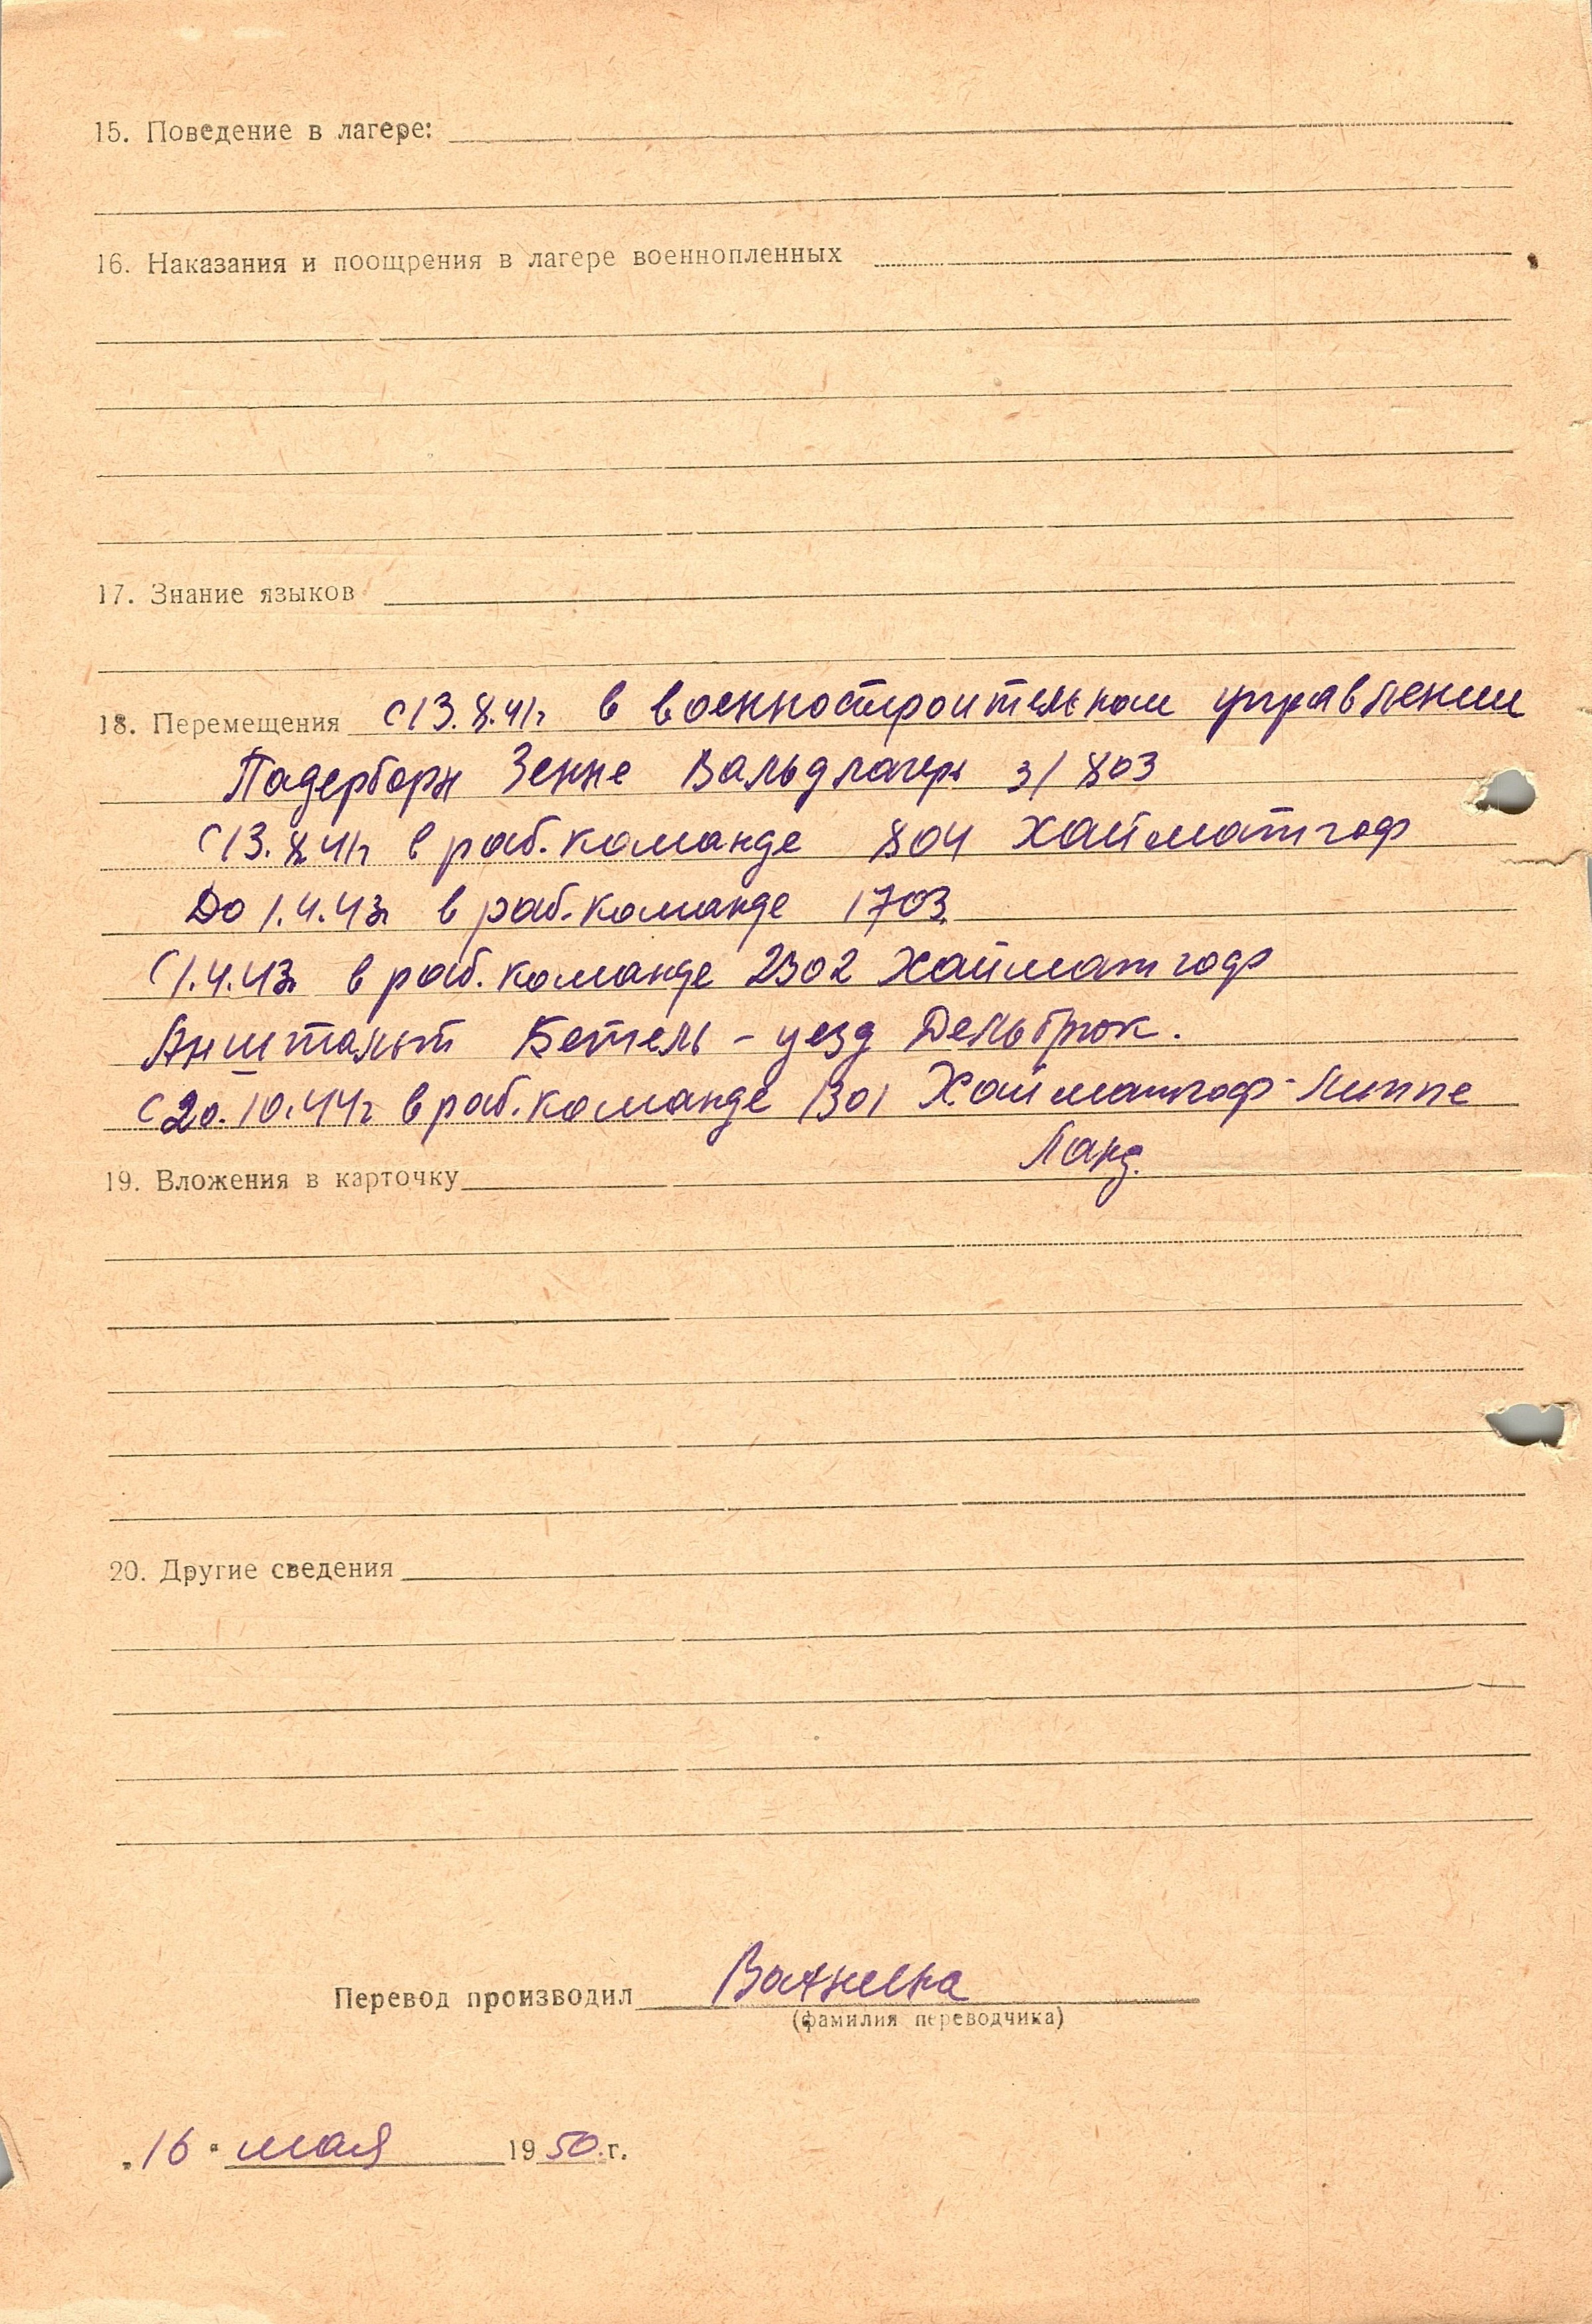 15. Поведение в лагере:
16. Наказания и поощрения в лагере военнопленных
17. Знание языков
18. Перемещения С 13.8.41г в военностроительном управлении
Падерборн Зенне Вальдлагерь 3/803
С 13.8.41г в раб. команде 804 Хайматгоф
До 1.4.43г в раб. команде 1703
С 1.4.43г в раб. команде 2302 Хайматгоф
Анштальт Бетель - уезд Дельбрюк.
С 20.10.44г в раб. команде 1301 Хайматгоф-Липпе
Ланд.
19. Вложения в карточку
20. Другие сведения
Перевод производил
(фамилия переводчика)
"16" мая 1950 г.